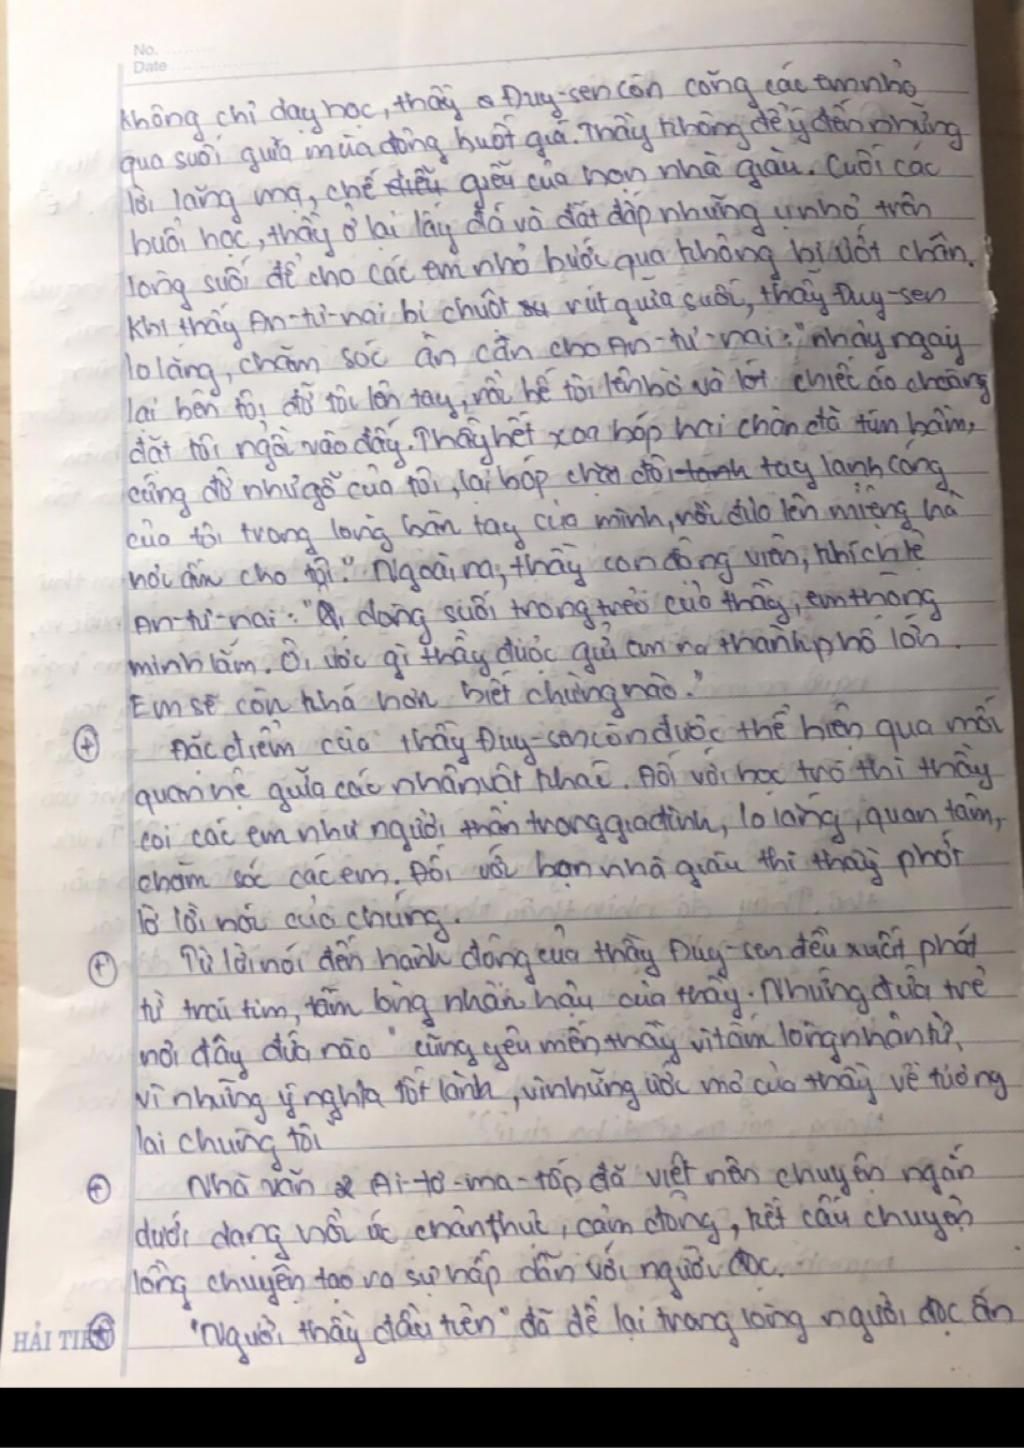 No.
Date
Không chỉ dạy học, thầy Đuy-sen còn cõng các em nhỏ
qua suối giữa mùa đông buốt giá. Thầy không để ý đến những
lời lăng mạ, chế giễu của bọn nhà giàu. Cuối các
buổi học, thầy ở lại lấy đá và đất đắp những ụ nhỏ trên
lòng suối để cho các em nhỏ bước qua không bị ướt chân.
Khi thấy An-tư-nai bị chuột rút giữa suối, thầy Đuy-sen
lo lắng, chăm sóc ân cần cho An-tư-nai: "nhảy ngay
lại bên tôi, đỡ tôi lên tay, rồi bế tôi lên bờ và lót chiếc áo choàng
đặt tôi ngồi vào đấy. Thầy hết xoa bóp hai chân đã tím bầm,
cứng đờ như gỗ của tôi, lại bóp đôi tay lạnh cóng
của tôi trong lòng bàn tay của mình, rồi đưa lên miệng hà
hơi ấm cho tôi." Ngoài ra, thầy còn động viên, khích lệ
An-tư-nai: "Ôi dòng suối trong trẻo của thầy, em thông
minh lắm. Ôi ước gì thầy được gửi em ra thành phố lớn.
Em sẽ còn khá hơn biết chừng nào."
+ Đặc điểm của thầy Đuy-sen còn được thể hiện qua mối
quan hệ giữa các nhân vật khác. Đối với học trò thì thầy
coi các em như người thân trong gia đình, lo lắng, quan tâm,
chăm sóc các em. Đối với bọn nhà giàu thì thầy phớt
lờ lời nói của chúng.
+ Từ lời nói đến hành động của thầy Đuy-sen đều xuất phát
từ trái tim, tấm lòng nhân hậu của thầy. Những đứa trẻ
nơi đây đứa nào "cũng yêu mến thầy vì tấm lòng nhân từ,
vì những ý nghĩa tốt lành, vì những ước mơ của thầy về tương
lai chúng tôi"
+ Nhà văn Ai-tơ-ma-tốp đã viết nên chuyện ngắn
dưới dạng hồi ức chân thực, cảm động, kết cấu chuyện
lồng chuyện tạo ra sự hấp dẫn với người đọc.
HẢI TIẾN + "Người thầy đầu tiên" đã để lại trong lòng người đọc ấn